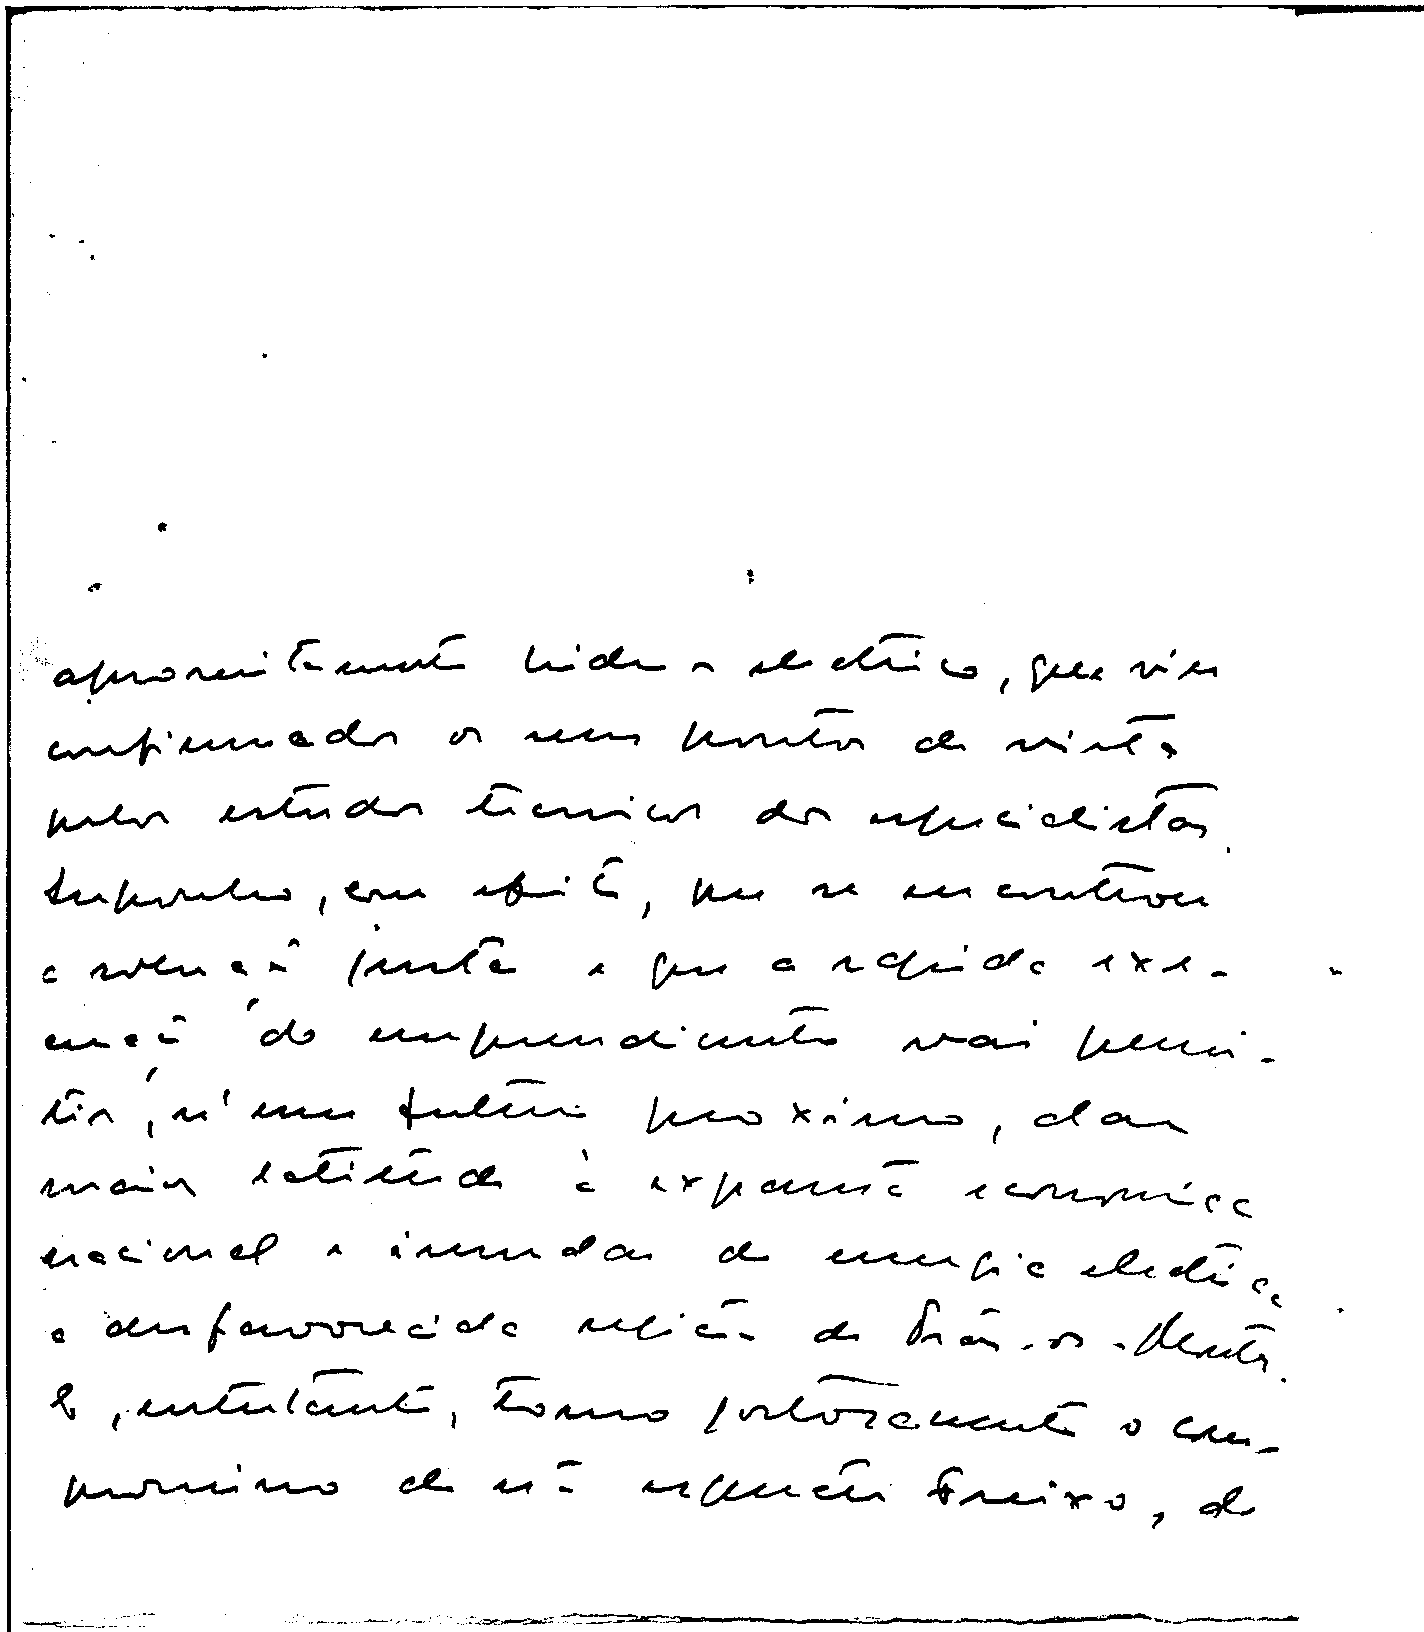 aproveitamento hidro-electrico, que viu
confirmados os seus pontos de vista
pelos estudos tecnicos dos especialistas.
Suponho, com efeito, que se encontrou
a solução justa e que a rapida exe-
cução do emprendimento vai permi-
tir, n'um futuro proximo, dar
maior latitude à expansão economica
nacional e inundar de energia electrica
a desfavorecida região de Trás-os-Montes.
E, entretanto, tomo gostosamente o com-
promisso de não esquecer Freixo, de